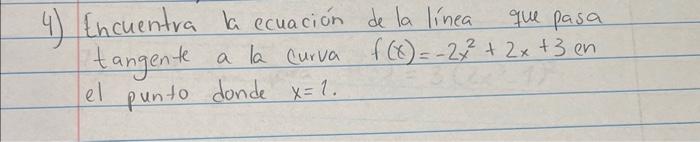 4) Encuentra la ecuación de la línea que pasa
tangente a la curva f(x)=-2x²+2x+3 en
el punto donde x=1.